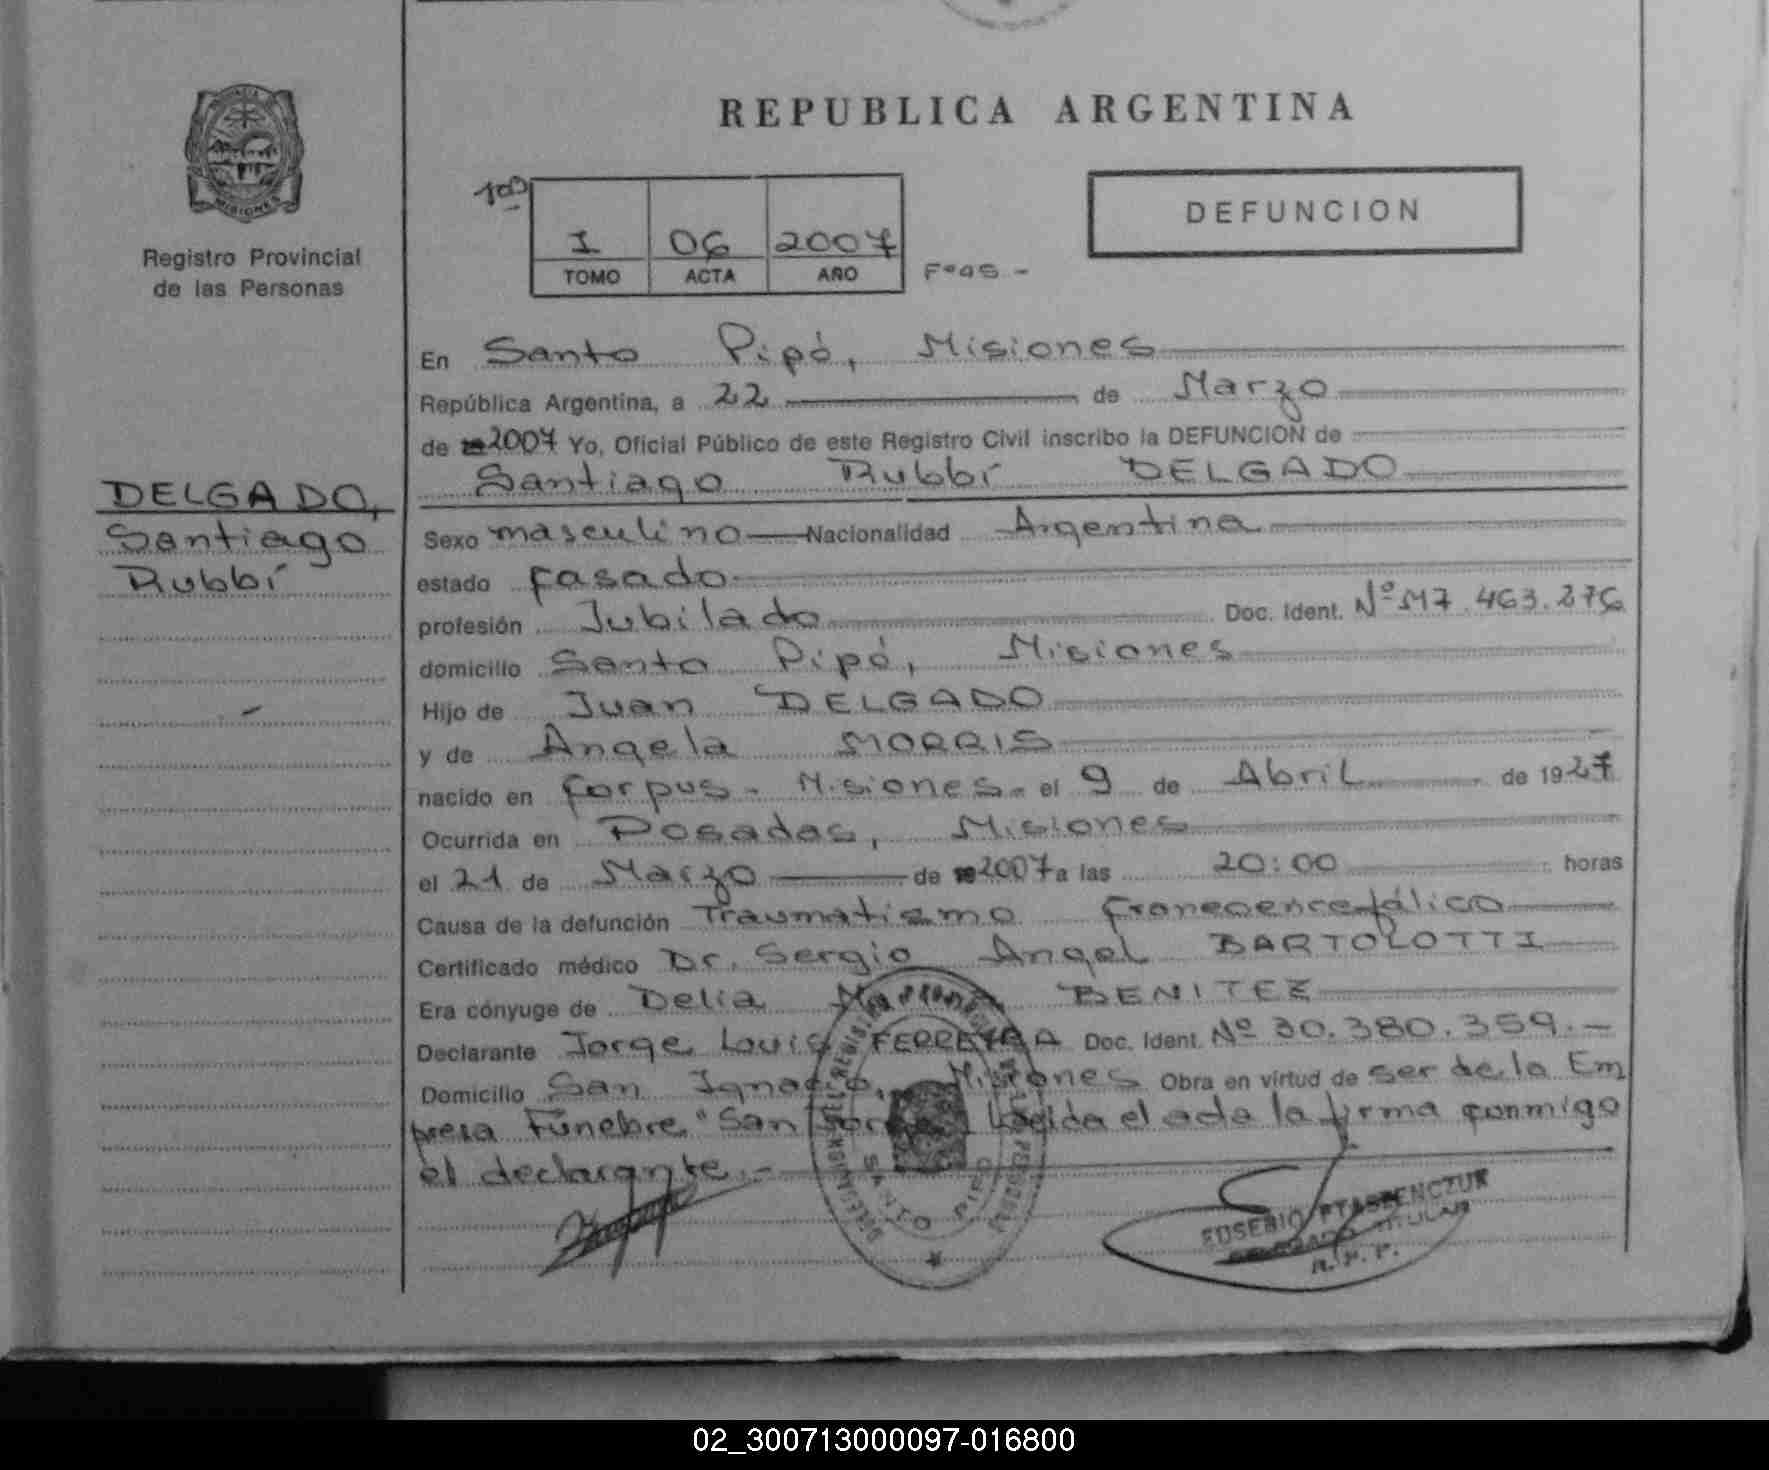 REPUBLICA ARGENTINA
PROVINCIA DE
MISIONES
Registro Provincial
de las Personas
I 06 2007
TOMO ACTA AÑO
DEFUNCION
En Santo Pipó, Misiones
República Argentina, a 22 de Marzo
de 2007 Yo, Oficial Público de este Registro Civil inscribo la DEFUNCION de
Santiago Rubbí DELGADO
DELGADO,
Santiago
Rubbí
Sexo masculino Nacionalidad Argentina
estado Casado
profesión Jubilado Doc. Ident. Nº M7.463.276
domicilio Santo Pipó, Misiones
Hijo de Juan DELGADO
y de Angela MORRIS
nacido en Corpus - Misiones - el 9 de Abril de 1927
Ocurrida en Posadas, Misiones
el 21 de Marzo de 2007 a las 20:00 horas
Causa de la defunción Traumatismo Craneoencefálico
Certificado médico Dr. Sergio Angel BARTOLOTTI
Era cónyuge de Delia BENITEZ
Declarante Jorge Louis FERREYRA Doc. Ident. Nº 30.380.359.-
Domicilio San Ignacio, Misiones Obra en virtud de ser de la Em
presa Fúnebre "San Jorge" Leída el acta la firma conmigo
el declarante.-
EUSEBIO PTASZENCZUK
TITULAR
R. P. P.
02_300713000097-016800